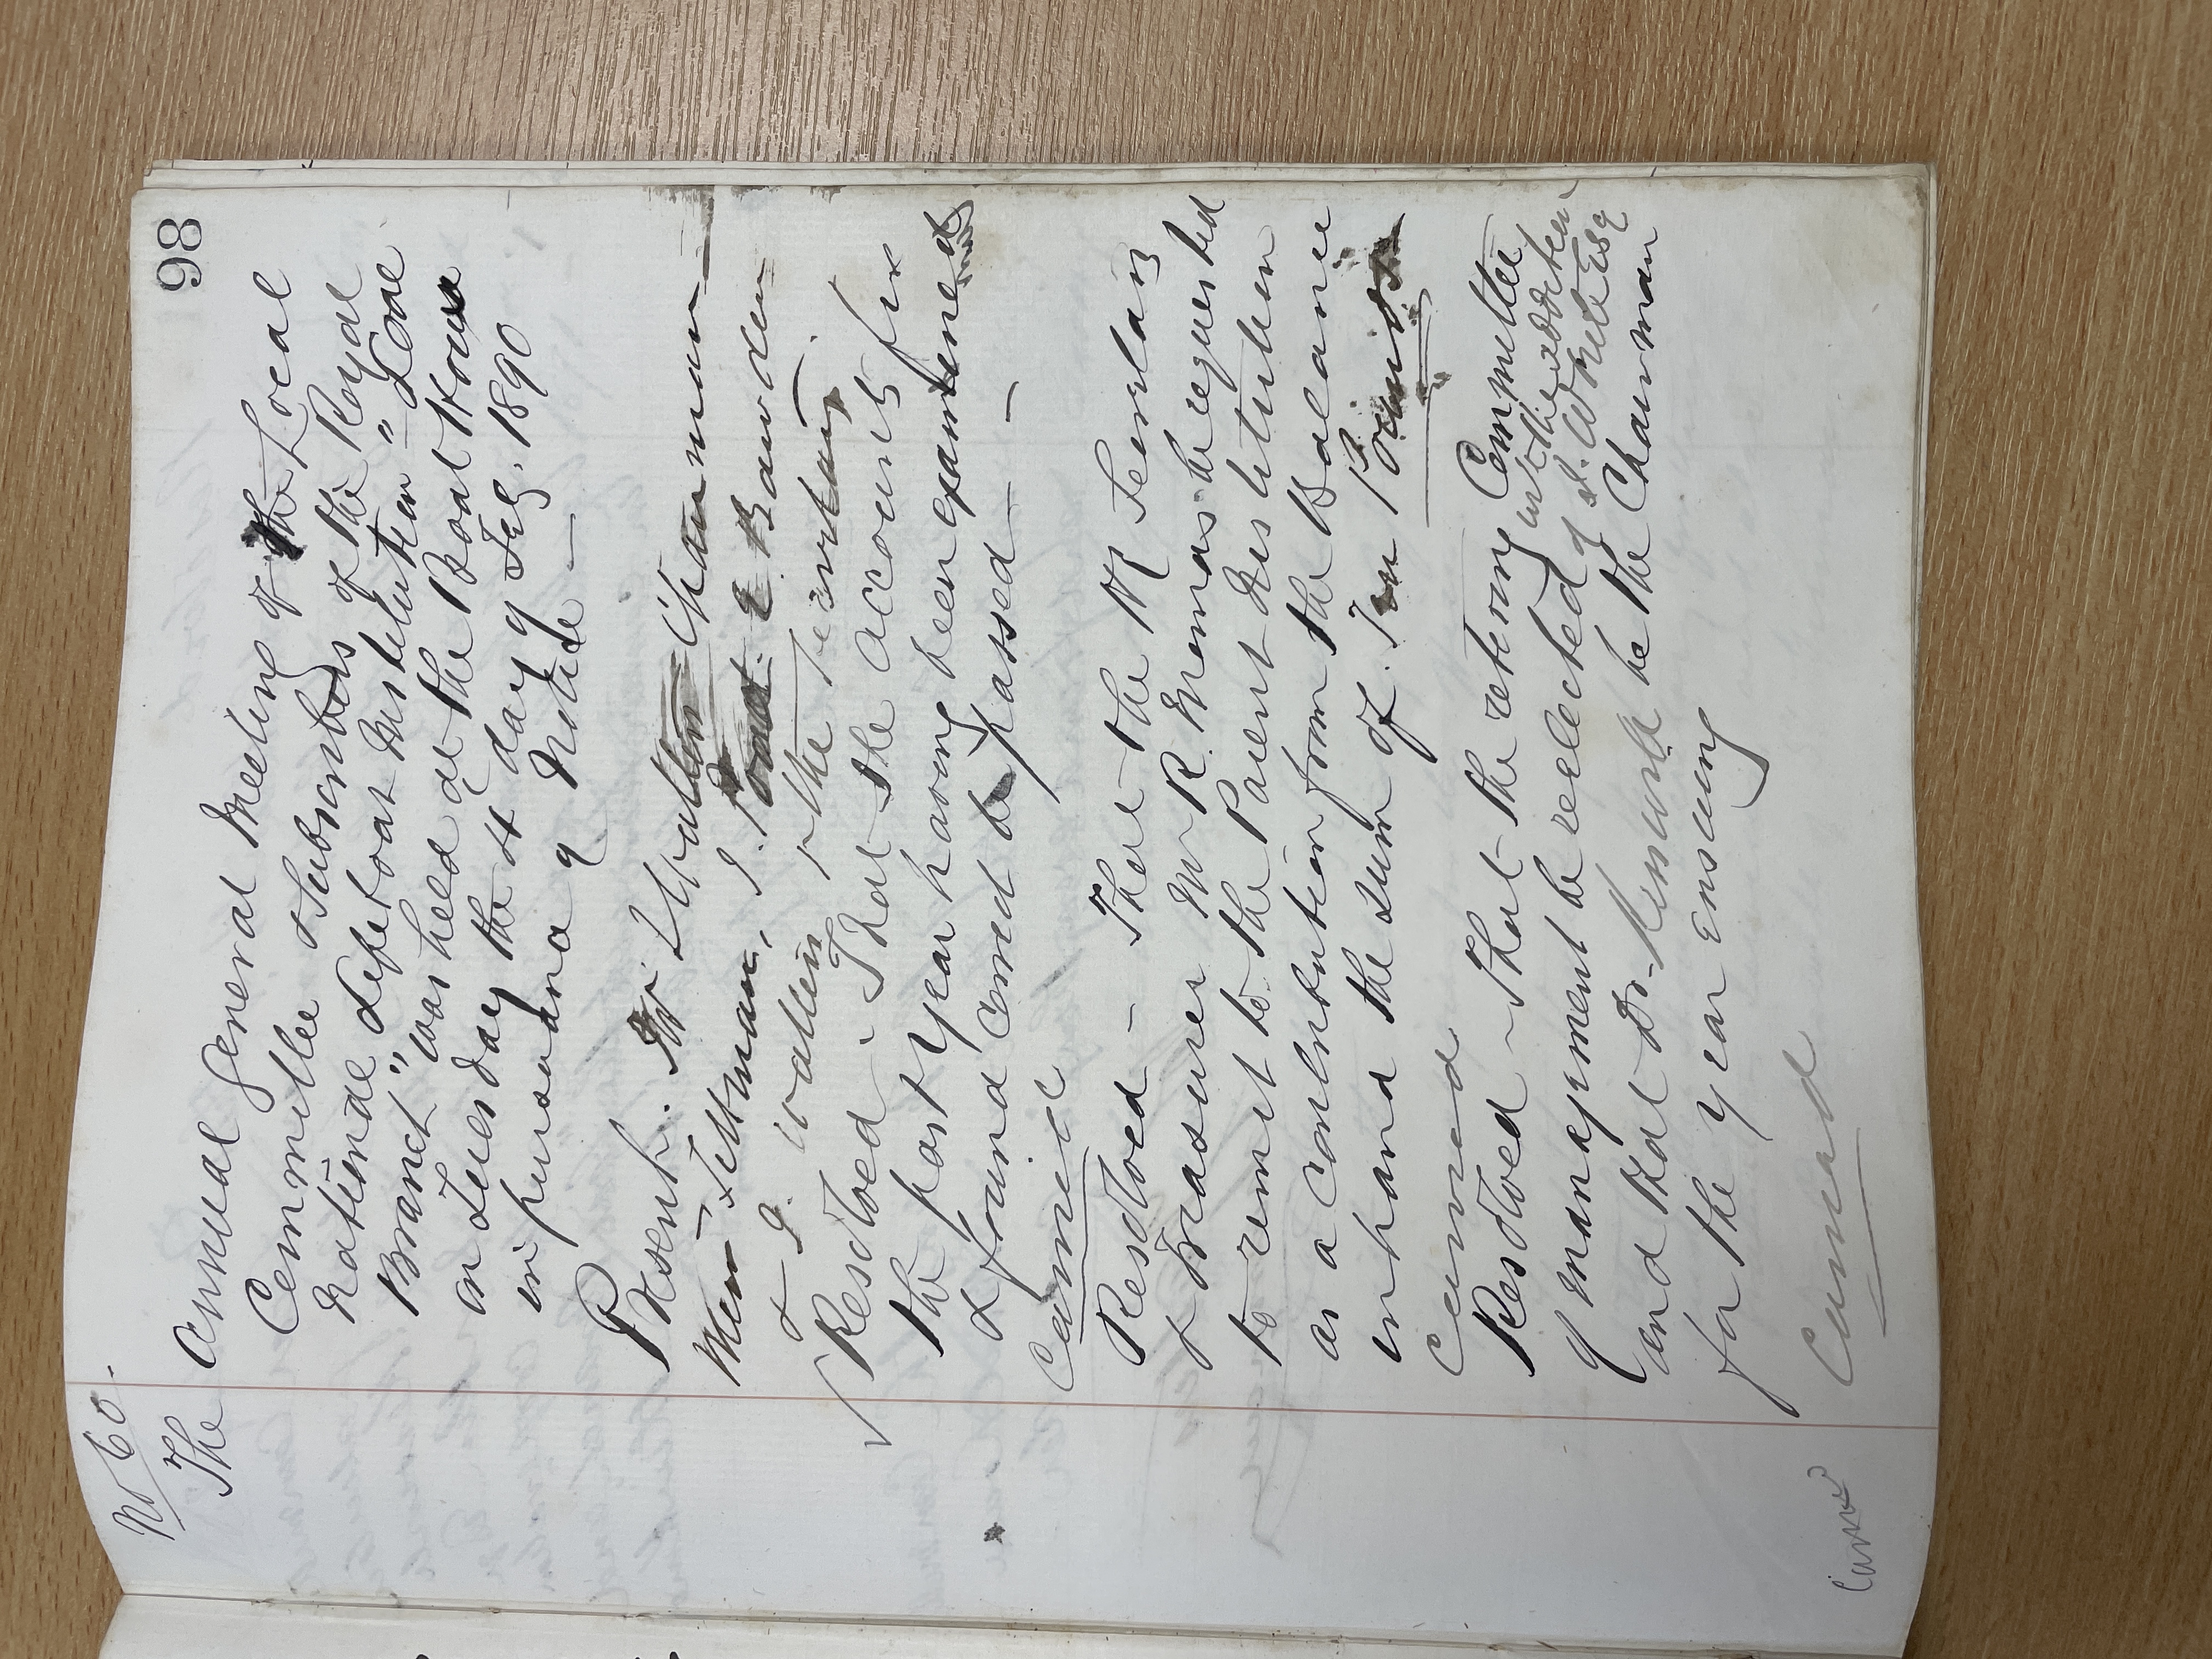 98
No 60.
The Annual General Meeting of the Local
Committee & Subscribers of the Royal
National Lifeboat Institution "Looe
Branch" was held at the Boat House
on Tuesday the 4 day of Feb. 1890
in pursuance of Notice —
Present. Chairman
Mein Tettman, J. E Bawden
& J. & the Secretary.
Resolved - That the accounts for
the past year having been examined
& found correct be passed —
Carried
Resolved — That the Secretary
& Treasurer Mr R. Thomas be requested
to remit to the Parent Institution
as a contribution from the Balance
in hand the sum of Ten Pounds
Carried
Resolved - That the retiring Committee
of management be reelected with the addition
of Esq
and that Dr. be the Chairman
for the year ensuing
Carried